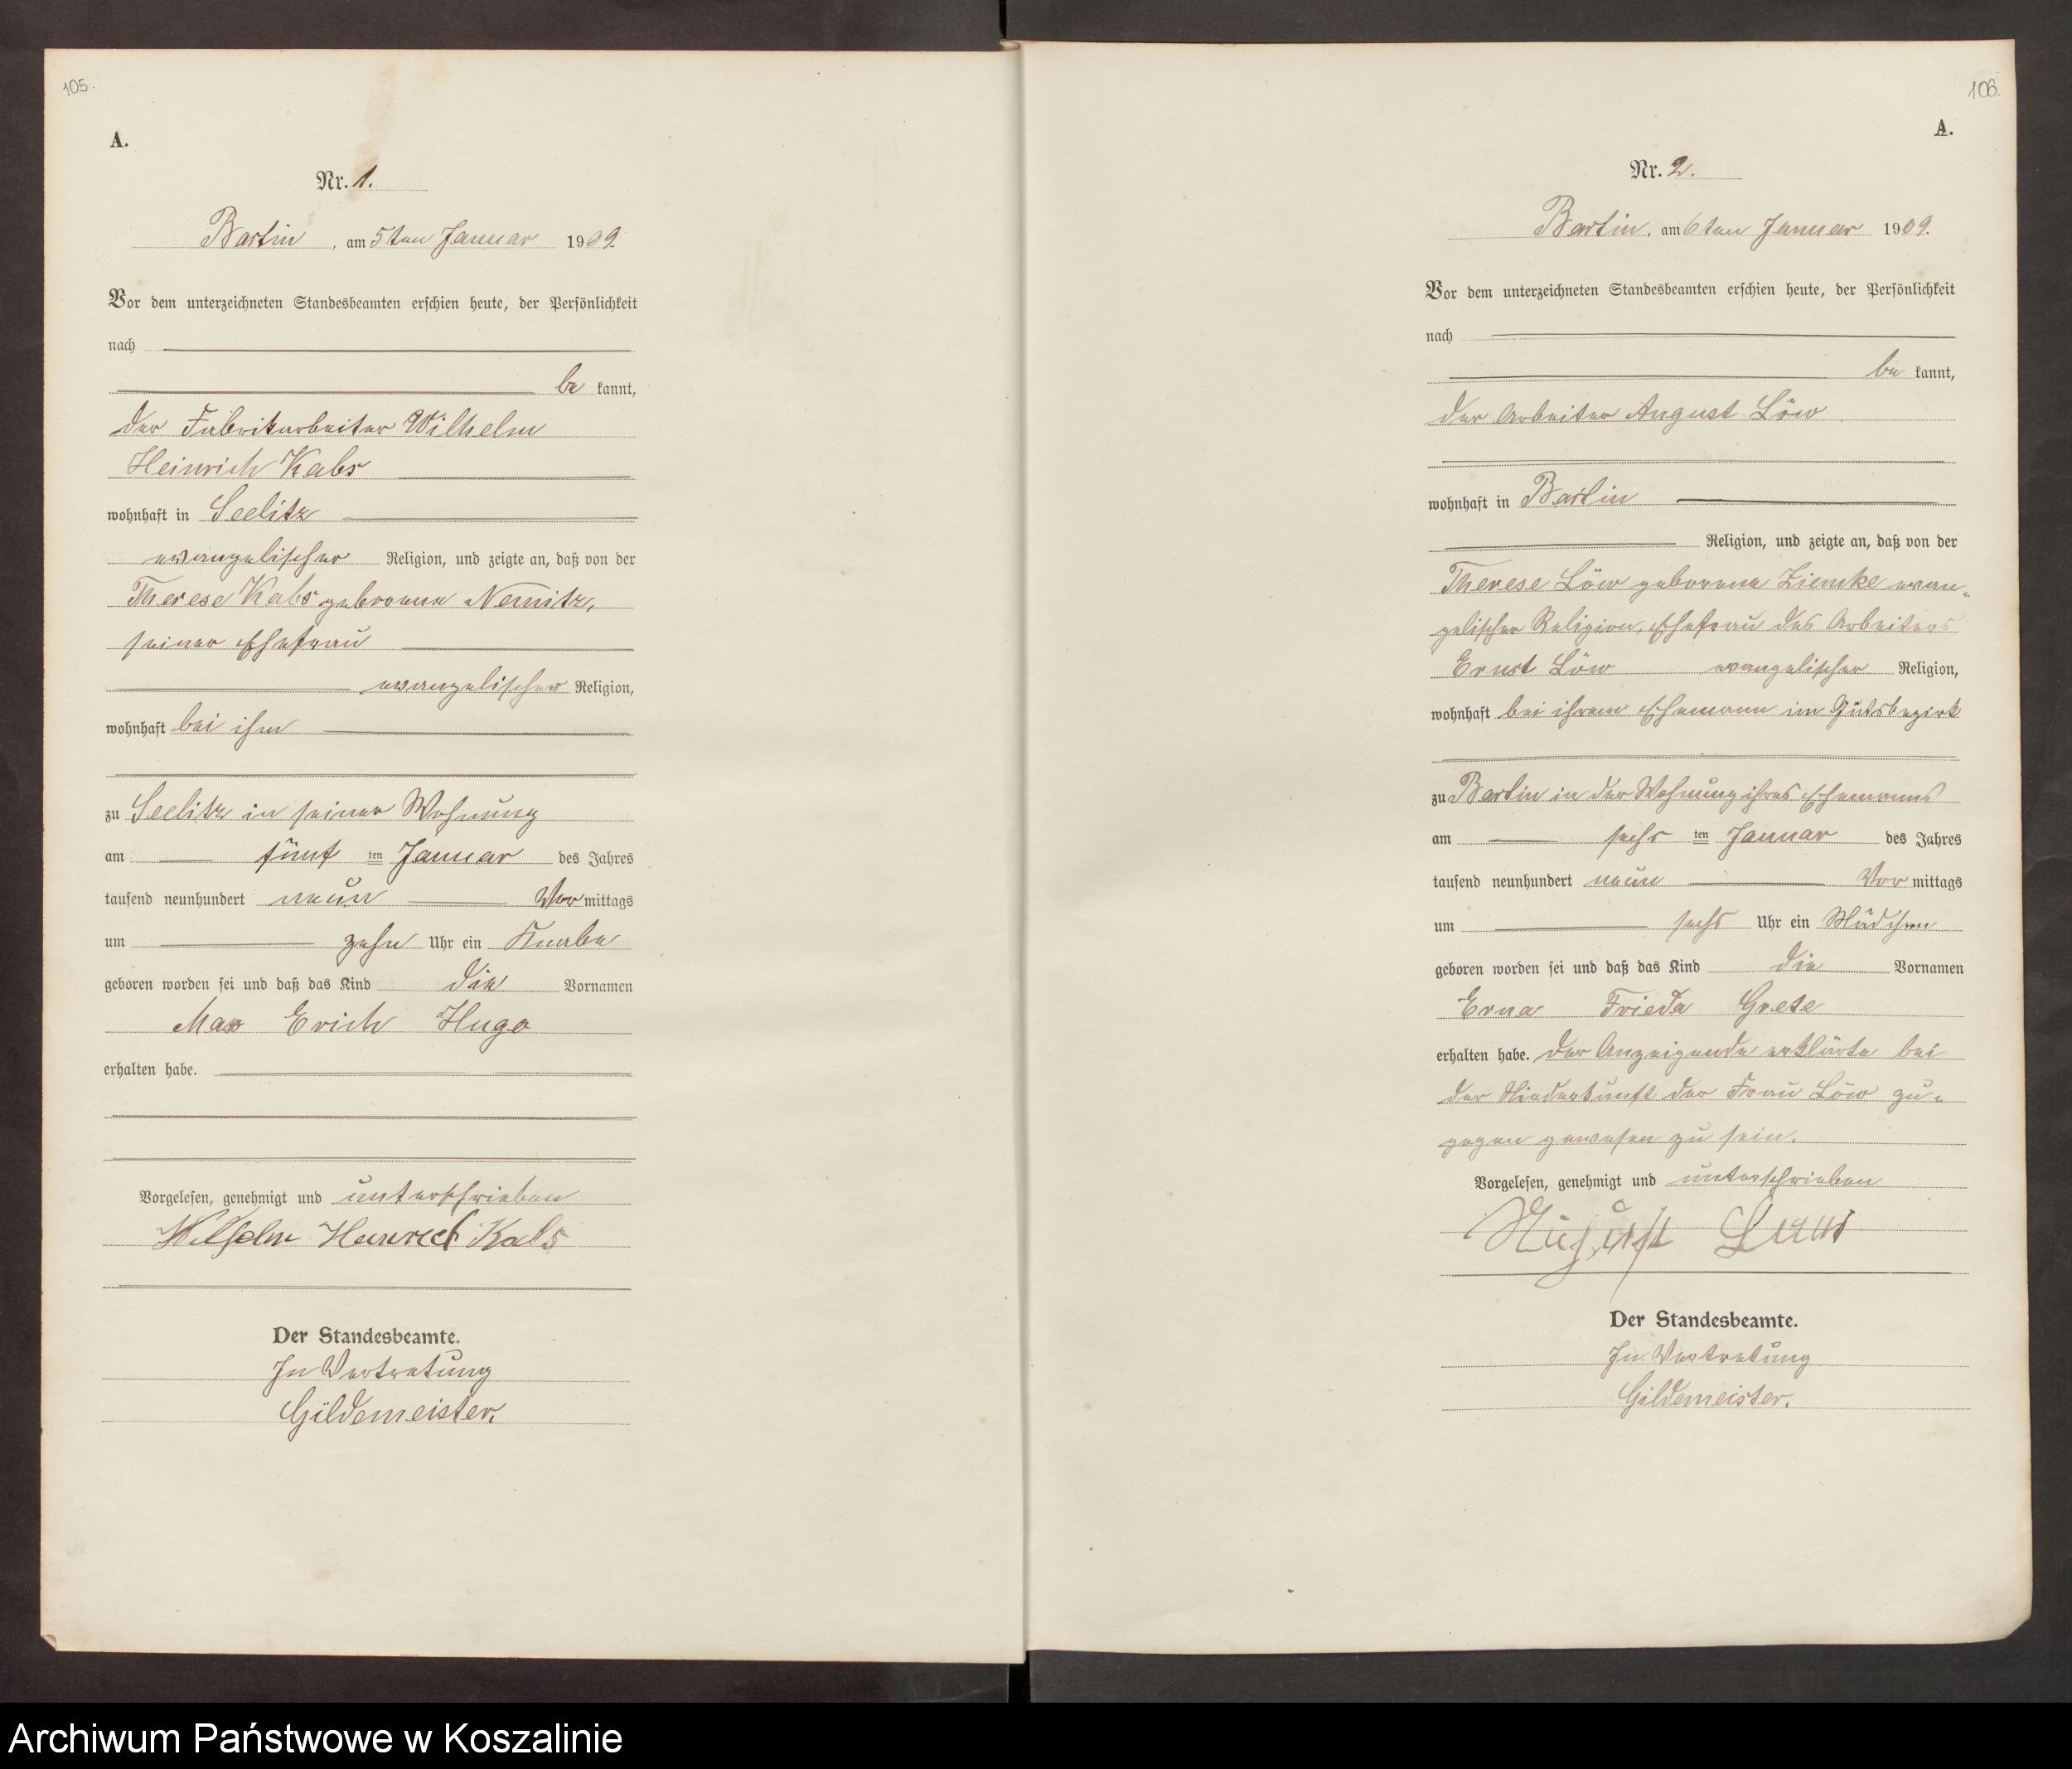 105.
A.
Nr. 1.
Bartin, am 5ten Januar 1909.
Vor dem unterzeichneten Standesbeamten erschien heute, der Persönlichkeit
nach
be kannt,
der Fabrikarbeiter Wilhelm
Heinrich Kabs
wohnhaft in Seelitz
evangelischer Religion, und zeigte an, daß von der
Therese Kabs geborene Nemitz,
seiner Ehefrau
evangelischer Religion,
wohnhaft bei ihm
zu Seelitz in seiner Wohnung
am fünf ten Januar des Jahres
tausend neunhundert neun Vor mittags
um zehn Uhr ein Knabe
geboren worden sei und daß das Kind die Vornamen
Max Erich Hugo
erhalten habe.
Vorgelesen, genehmigt und unterschrieben
Wilhelm Heinrich Kabs
Der Standesbeamte.
In Vertretung
Gildemeister.
106.
A.
Nr. 2.
Bartin, am 6ten Januar 1909.
Vor dem unterzeichneten Standesbeamten erschien heute, der Persönlichkeit
nach
be kannt,
der Arbeiter August Löw
wohnhaft in Bartin
Religion, und zeigte an, daß von der
Therese Löw geborene Ziemke evan-
gelischer Religion, Ehefrau des Arbeiters
Ernst Löw evangelischer Religion,
wohnhaft bei ihrem Ehemann im Gutsbezirk
zu Bartin in der Wohnung ihres Ehemanns
am sechs ten Januar des Jahres
tausend neunhundert neun Vor mittags
um sechs Uhr ein Mädchen
geboren worden sei und daß das Kind die Vornamen
Erna Frieda Grete
erhalten habe. Der Anzeigende erklärte bei
der Niederkunft der Frau Löw zu-
gegen gewesen zu sein.
Vorgelesen, genehmigt und unterschrieben
August
Der Standesbeamte.
In Vertretung
Gildemeister.
Archiwum Państwowe w Koszalinie